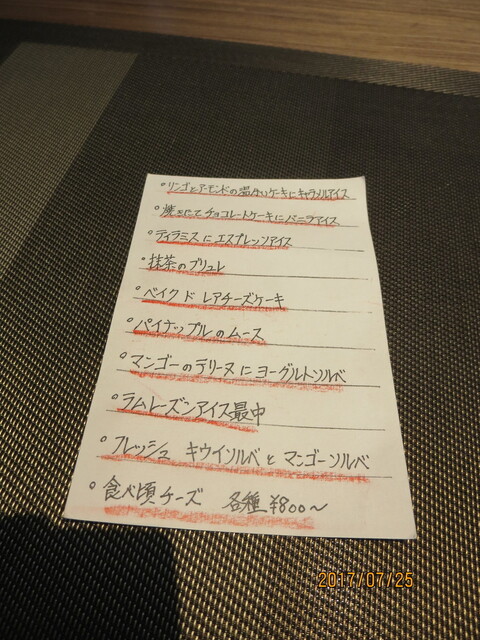 ○リンゴとアーモンドの温かいケーキにキャラメルアイス
○焼きたてチョコレートケーキにバニラアイス
○ティラミスにエスプレッソアイス
○抹茶のブリュレ
○ベイクド レアチーズケーキ
○パイナップルのムース
○マンゴーのテリーヌにヨーグルトソルベ
○ラムレーズンアイス最中
○フレッシュ キウイソルベとマンゴーソルベ
○食べ頃チーズ 各種¥800〜
2017/07/25